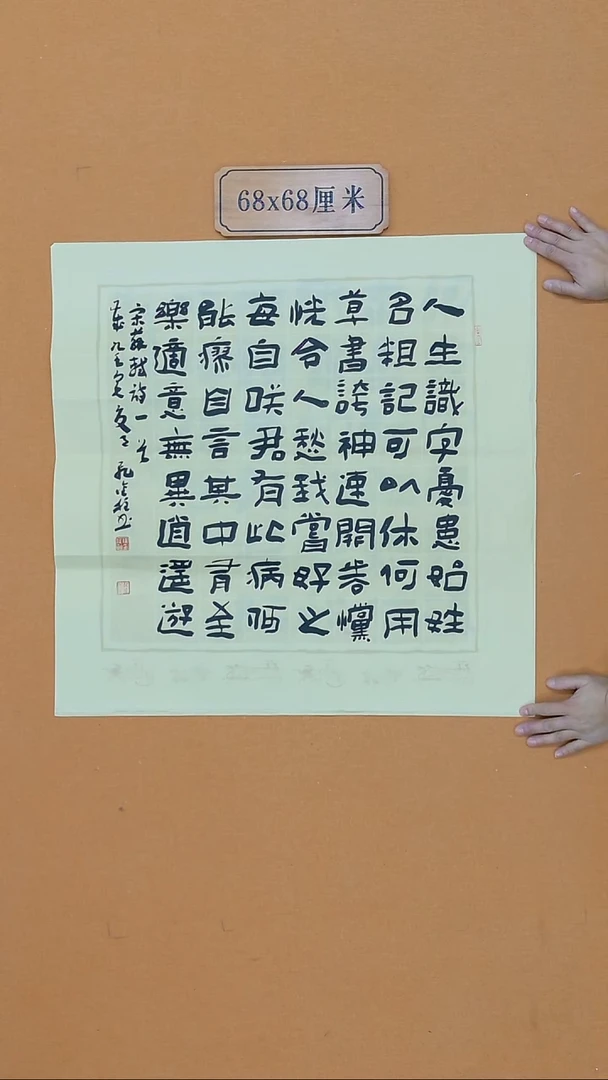 68x68厘米
人生識字憂患始姓
名粗記可以休何用
草書誇神速開卷戃
怳令人愁我嘗好之
每自咲君有此病何
能瘳自言其中有至
樂適意無異逍遙遊
宋蘇軾詩一首